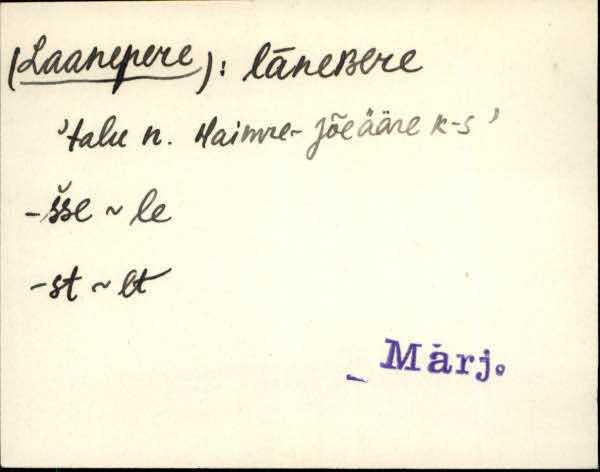 (Laanepere): lāneʙere
'talu n. Haimre-Jõeääre k-s'
-s̆se ~ le
-st ~ lt
Märj.